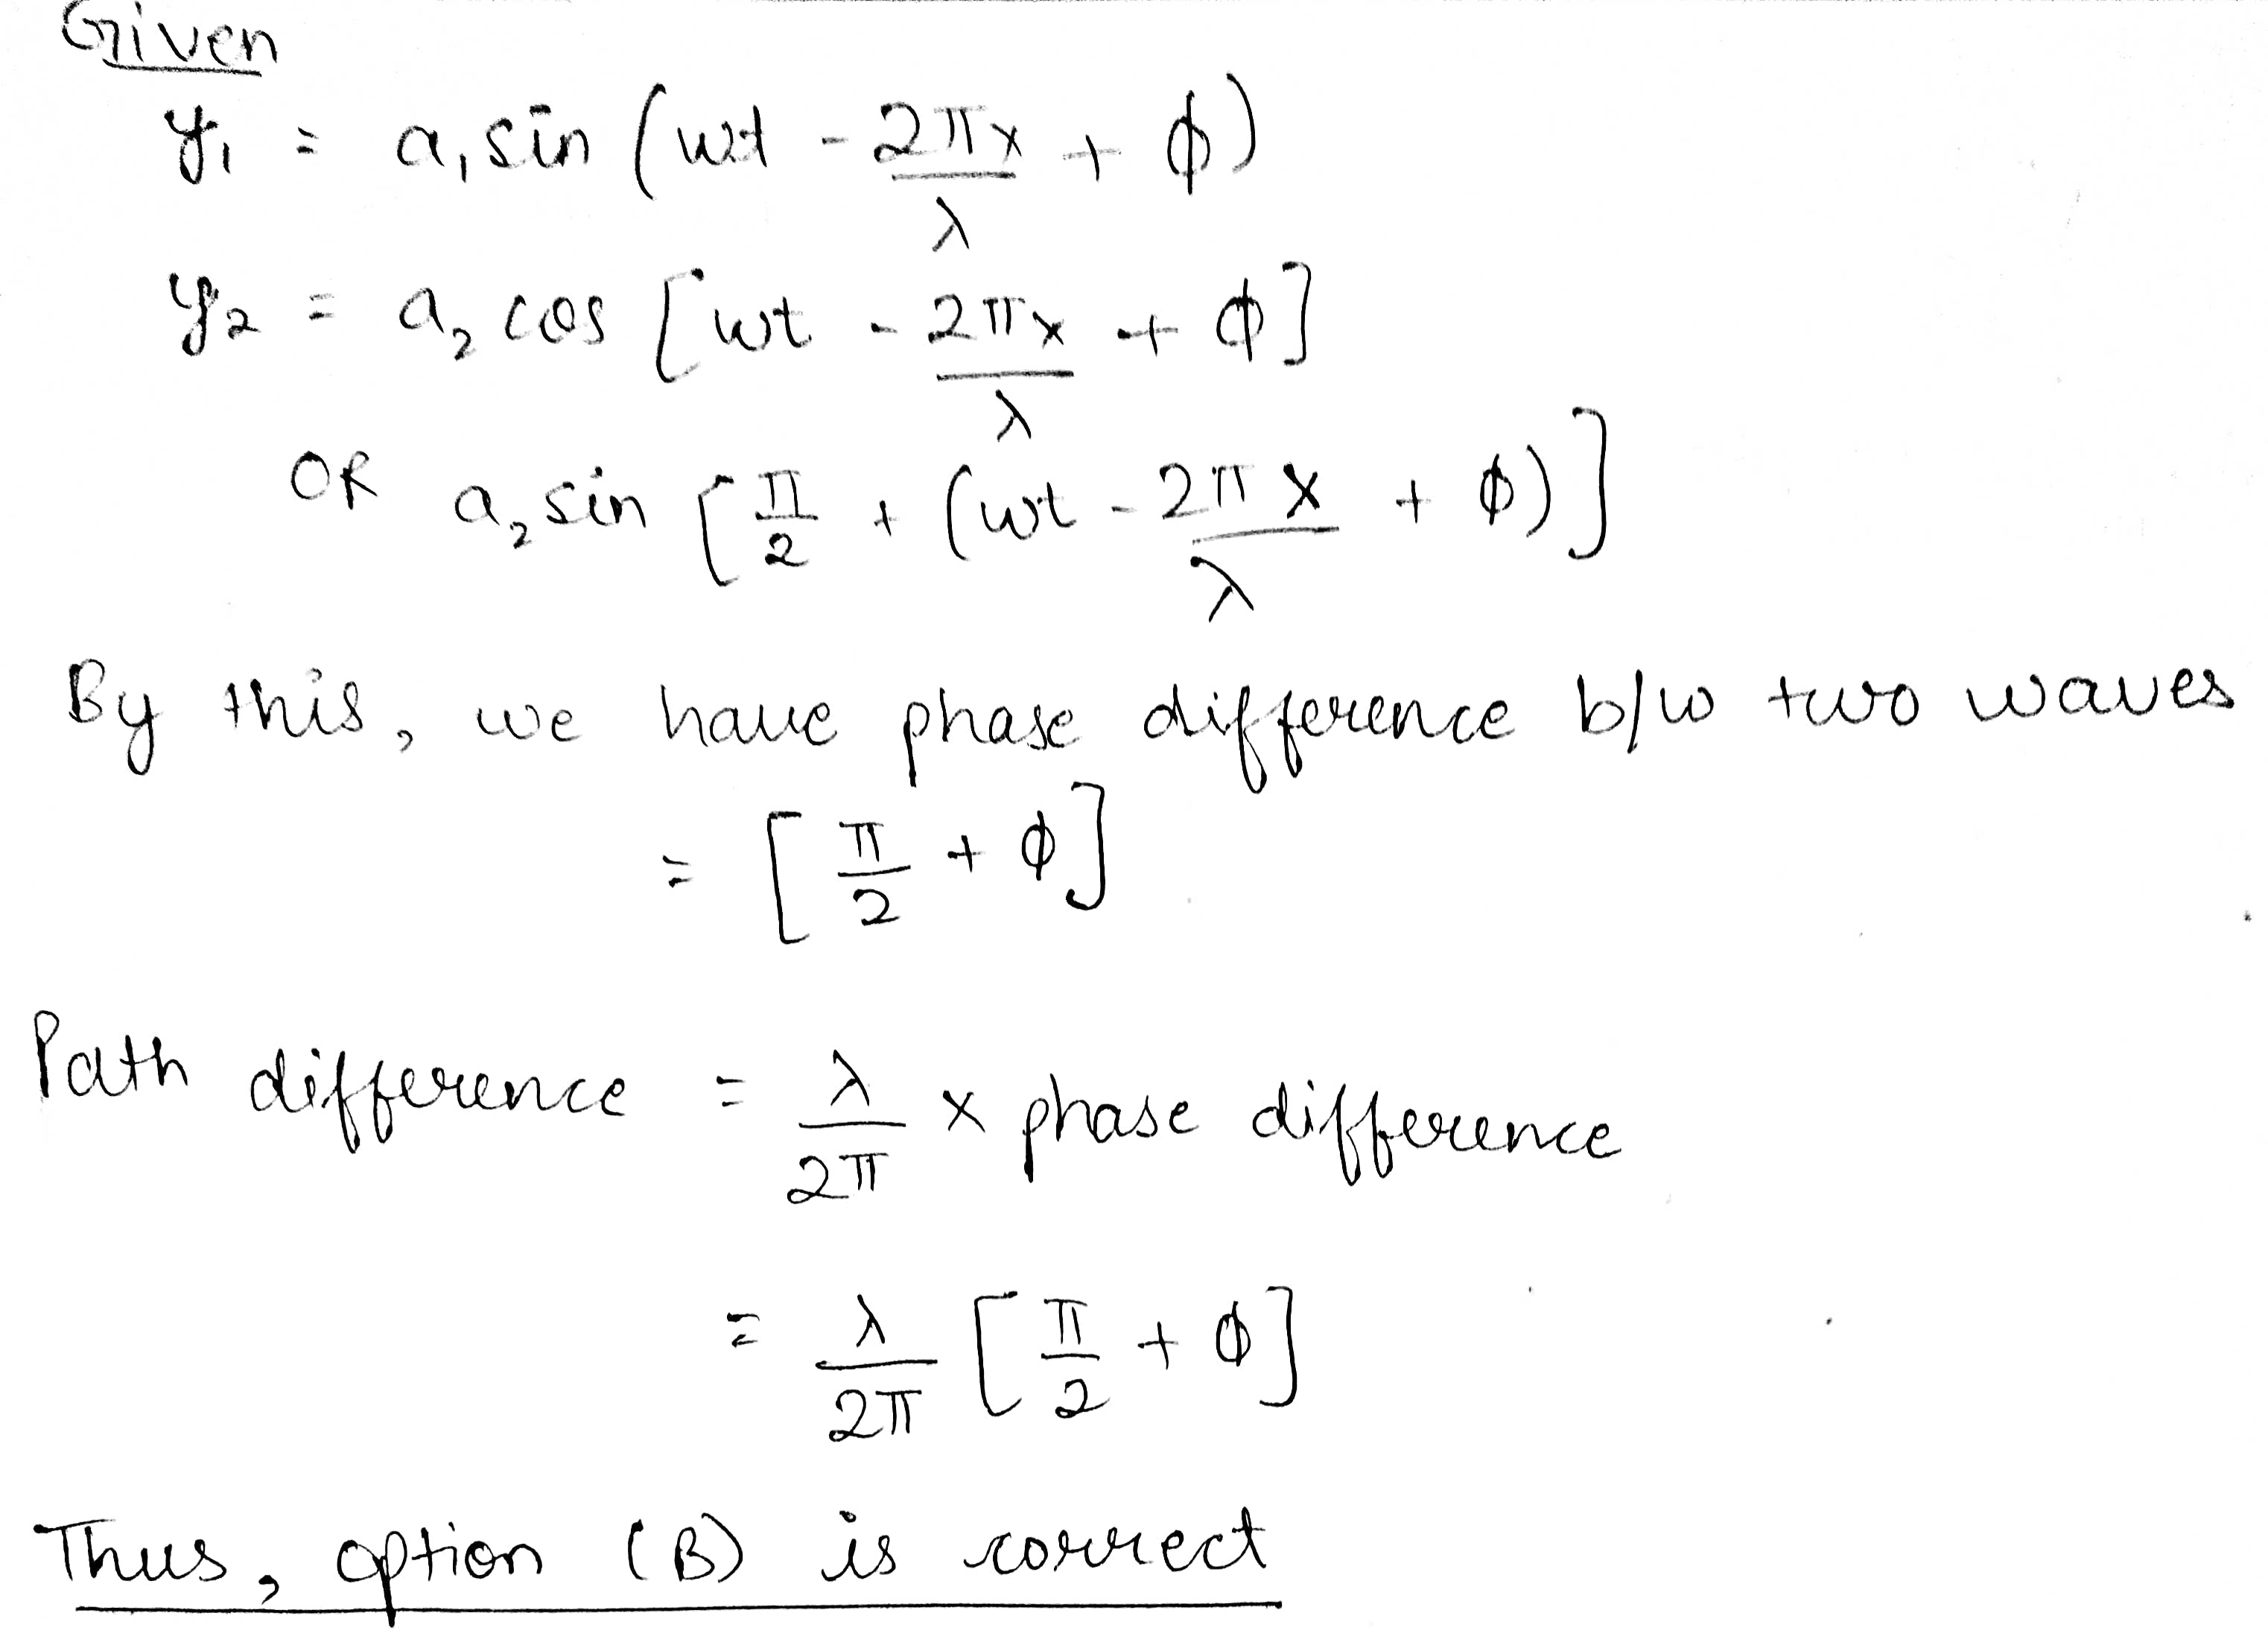 Given
y₁ = a₁ sin (wt - 2πx/λ + ϕ)
y₂ = a₂ cos [wt - 2πx/λ + ϕ]
OR a₂ sin [π/2 + (wt - 2πx/λ + ϕ)]
By this, we have phase difference b/w two waves
= [π/2 + ϕ]
Path difference = λ/2π × phase difference
= λ/2π [π/2 + ϕ]
Thus, option (B) is correct